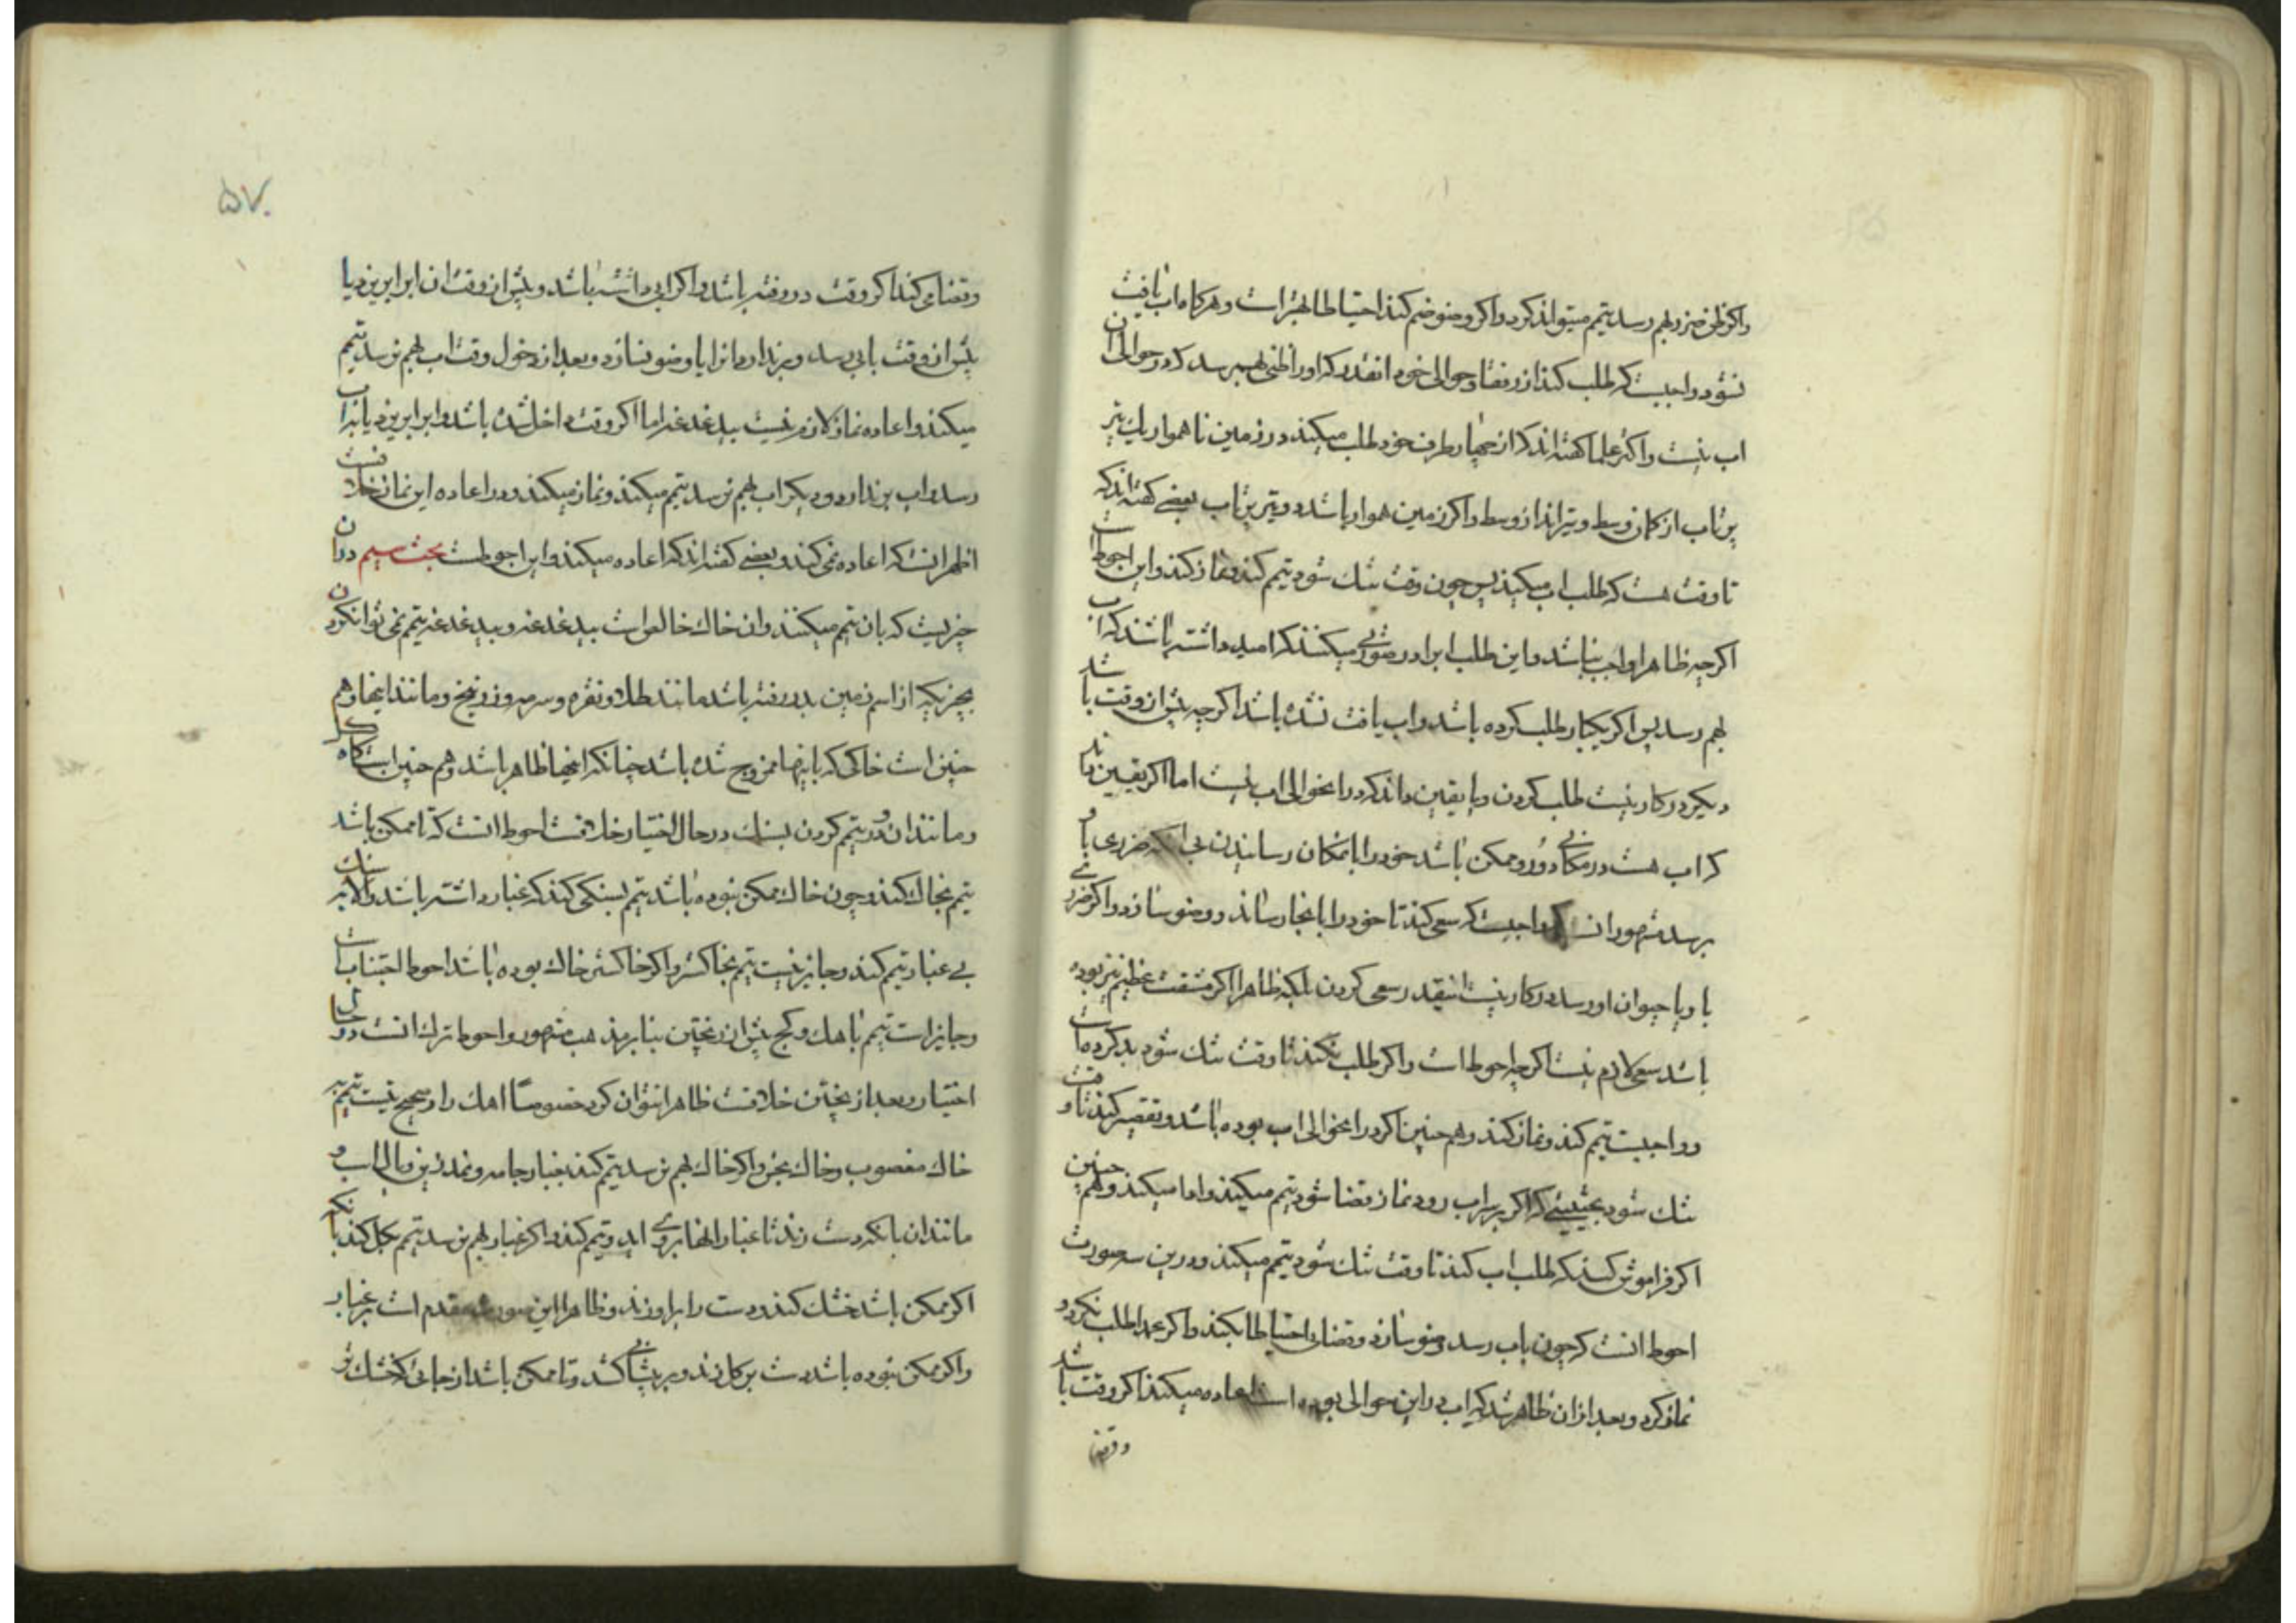 واکر ظن ضرر بهم رسد تیمم میتواند کرد واکر وضو ضم کند احتیاطا بهتر است وهرکاه اب یافت
نشود واجبست که طلب کند از رفقا وحوالی خود انقدر که او را ظنی بهمرسد که در حوالی ان
اب نیست واکثر علما کفته اند که از چهار طرف خود طلب میکند در زمین ناهموار یک تیر
پرتاب از کمان وسط وتیرانداز وسط واکر زمین هموار باشد دو تیر پرتاب بعضی کفته اند که
تا وقت هست که طلب اب میکند پس چون وقت تنک شود تیمم کند ونماز کند واین احوط است
اکرچه ظاهرا واجب نباشد واین طلب ابرا در صورتی میکنند که امید داشته باشند که اب
بهم رسد پس اکر یکبار طلب کرده باشد واب یافت نشده باشد اکرچه پیش از وقت باشد
دیکر در کار نیست طلب کردن ویا یقین داند که در انحوالی اب نیست اما اکر یقین داند
که اب هست در مکانی دور وممکن باشد خود را بانمکان رسانیدن بی انکه ضرری باو
برسد مشهور انست که واجبست که سعی کند تا خود را بانجا رساند ووضو سازد واکر ضرری
باو یا حیوان او رسد در کار نیست انیقدر سعی کردن بلکه ظاهرا اکر مشقت عظیم نیز بوده
باشد سعی لازم نیست اکرچه احوط است واکر طلب نکند تا وقت تنک شود بد کرده است
وواجبست تیمم کند ونماز کند وهم چنین اکر در انحوالی اب بوده باشد وتقصیر کند تا وقت
تنک شود بحیثیتی که اکر بر سر اب رود نماز قضا شود تیمم میکند واما میکند وهم چنین
اکر فراموش کند که طلب اب کند تا وقت تنک شود تیمم میکند ودرین سه صورت
احوط انست که چون باب رسد وضو سازد وقضای احتیاطا بکند واکر عمدا طلب نکرد و
نماز کرد وبعد از ان ظاهر شد که اب در این حوالی بوده است اعاده میکند اکر وقت باشد
وقضا
۵۷
وقضا می کند اکر وقت در رفته باشد واکر ابی داشته باشد وپیش از وقت ان ابرا بریزد یا
پیش از وقت بابی رسد وبر ندارد انرا یا وضو نسازد وبعد از دخول وقت اب بهم نرسد تیمم
میکند واعاده نماز لازم نیست بیدغدغه اما اکر وقت داخل شده باشد وابرا بریزد یا باب
رسد واب بر ندارد ودیکر اب بهم نرسد تیمم میکند ونماز میکند ودر اعاده این نماز خلافست
اظهر انست که اعاده نمی کند وبعضی کفته اند که اعاده میکند واین احوطست بحث سیم در ان
چیزیست که بان تیمم میکنند وان خاک خالص است بیدغدغه وبیدغدغه تیمم نمی توان کرد
بچیزیکه از اسم زمین بدر رفته باشد مانند طلا ونقره وسرمه وزرنیخ ومانند اینها وهم
چنین است خاکی که باینها ممزوج شده باشد چنانکه اینها ظاهر باشد وهم چنین است کاه کل
ومانند ان ودر تیمم کردن بسنک در حال اختیار خلافست احوط انست که تا ممکن باشد
تیمم بخاک کند وچون خاک ممکن نبوده باشد تیمم بسنکی کند که غبار داشته باشد والا بر سنک
بی غبار تیمم کند وجایز نیست تیمم بخاکستر واکر خاکستر خاک بوده باشد احوط اجتناب است
وجایز است تیمم باهک وکج پیش از پختن بنابر مذهب مشهور واحوط ترک انست در حال
اختیار وبعد از پختن خلافست ظاهرا نتوان کرد خصوصًا اهک را وصحیح نیست تیمم به
خاک مغصوب وخاک نجس واکر خاک بهم نرسد تیمم کند بغبار جامه ونمدزین ویال اسب و
مانند ان بانکه دست زند تا غبار انها بروی اید وتیمم کند واکر غبار بهم نرسد تیمم بکل کند بانکه
اکر ممکن باشد خشک کند ودست را براو زند وظاهرا این صورت مقدم است بر غبار
واکر ممکن نبوده باشد دست بر کل زند وبر پیشانی کشد وتا ممکن باشد از جائی که خشک تر